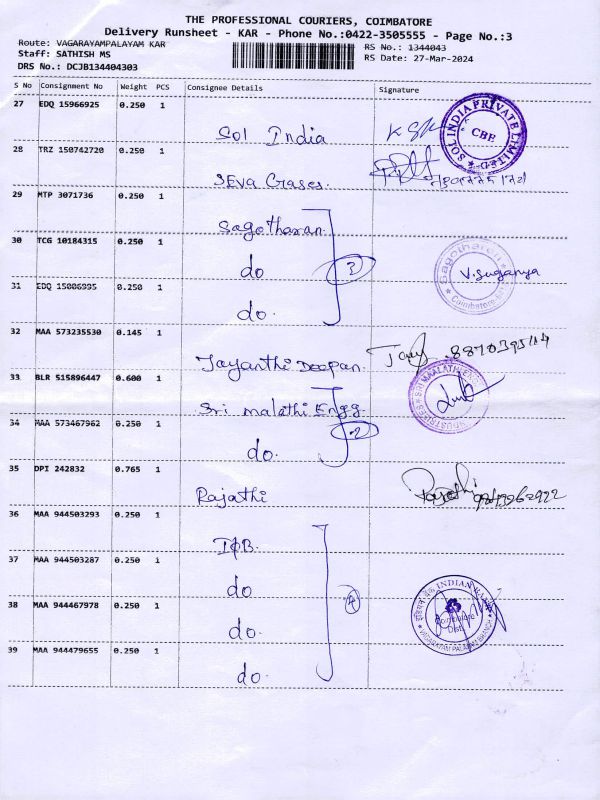 THE PROFESSIONAL COURIERS, COIMBATORE
Delivery Runsheet - KAR - Phone No.:0422-3505555 - Page No.:3
Route: VAGARAYAMPALAYAM KAR
Staff: SATHISH MS
DRS No.: DCJB134404303
RS No.: 1344043
RS Date: 27-Mar-2024
S No Consignment No Weight PCS Consignee Details Signature
27 EDQ 15966925 0.250 1
Sol India KSK
SOL INDIA PRIVATE LIMITED CBE
28 TRZ 150742720 0.250 1
Seva Grases.
29 MTP 3071736 0.250 1
Sagotharan.
30 TCG 10184315 0.250 1
do 3
Sagotharan Coimbatore V. Suganya
31 EDQ 15006995 0.250 1
do.
32 MAA 573235530 0.145 1
Jayanthi Deepan.
33 BLR 515896447 0.600 1
Sri Malathi Engg.
SRI MAALATHI INDUSTRIES
34 MAA 573467962 0.250 1
do. 2
35 DPI 242832 0.765 1
Rajathi
36 MAA 944503293 0.250 1
IOB.
37 MAA 944503287 0.250 1
do 4
INDIAN BANK Coimbatore Dist.
38 MAA 944467978 0.250 1
do.
39 MAA 944479655 0.250 1
do.